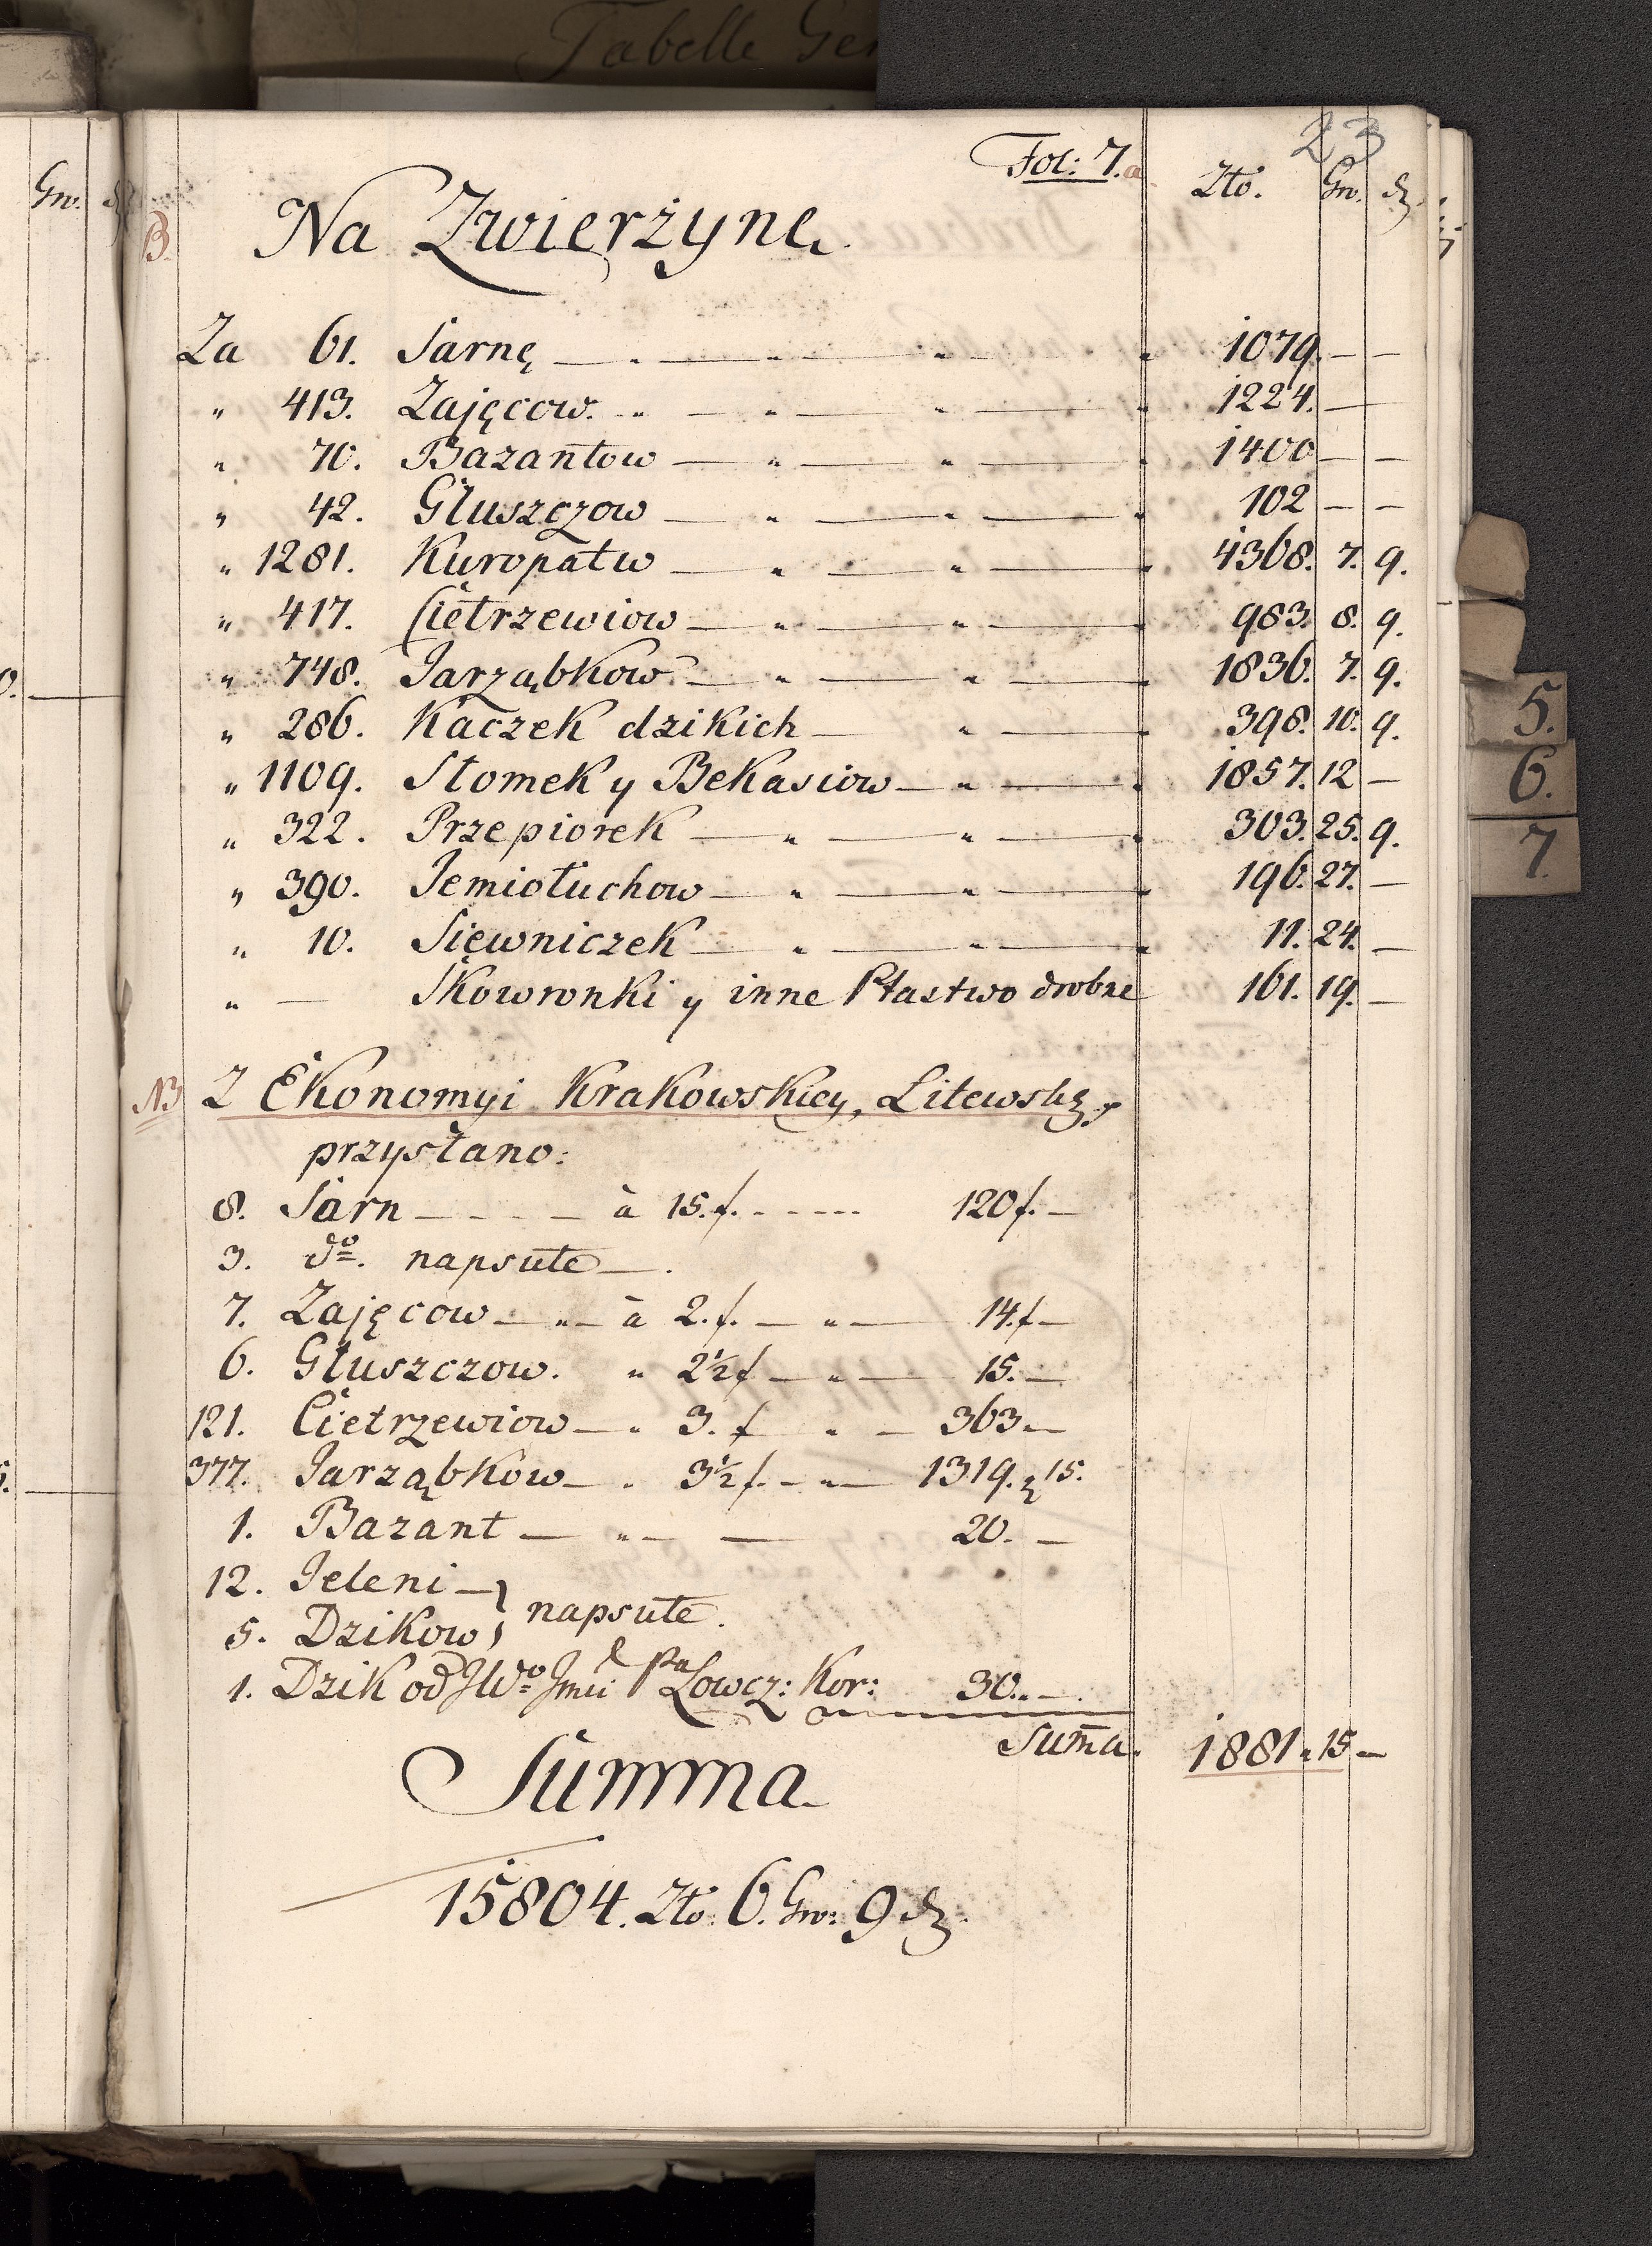 Tabelle Gen
23
Fol: 7.a
Zło. Gr. d
Gr. d
B. Na Zwierzynę.
Za 61. Sarnę — „ — „ — „ — „ 1079. — —
„ 413. Zajęcow. — „ — „ — „ — „ 1224. —
„ 70. Bazantow — „ — „ — „ 1400 — —
„ 42. Głuszczow — „ — „ — „ 102 — —
„ 1281. Kuropatw — „ — „ — „ 4368. 7. 9.
„ 417. Cietrzewiow — „ — „ — „ 983. 8. 9.
„ 748. Jarząbkow — „ — „ — „ 1836. 7. 9.
„ 286. Kaczek dzikich — „ — „ 398. 10. 9.
„ 1109. Słomek y Bekasiow — „ — „ 1857. 12 —
„ 322. Przepiorek — „ — „ — „ 303. 25. 9.
„ 390. Jemiołuchow — „ — „ — „ 196. 27. —
„ 10. Siewniczek — „ — „ — „ 11. 24. —
„ — Skowronki y inne Ptastwo drobne 161. 19. —
NB Z Ekonomyi Krakowskiey, Litewsky
przysłano:
8. Sarn — — — — à 15.f. - - - - 120f. —
3. do. napsute —.
7. Zajęcow — „ — à 2.f. — „ — 14.f —
6. Głuszczow. „ 2½f — „ — 15. —
121. Cietrzewiow — „ 3.f „ — 363 —
377. Jarząbkow — „ 3½f. — „ — 1319. 15.
1. Bazant — „ — — 20. —
12. Jeleni —
5. Dzikow } napsute.
1. Dzik od JWo Jmci Pa Łowcz: Kor: 30. —
Suma. 1881 „ 15 —
Summa
15804. Zło. 6. Gr: 9 d.
5.
6.
7.